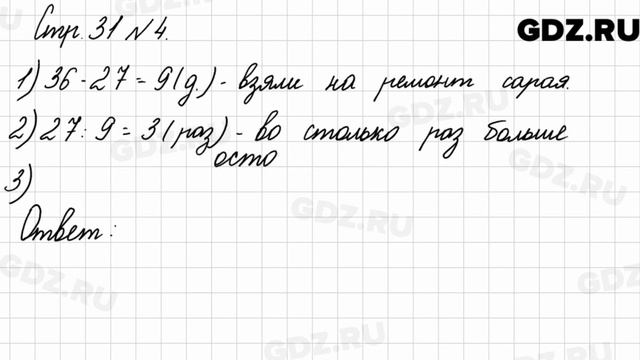 GDZ.RU
Стр. 31 № 4.
1) 36 - 27 = 9 (д.) - взяли на ремонт сарая.
2) 27 : 9 = 3 (раз) - во столько раз больше
осто
3)
Ответ:
GDZ.RU
GDZ.RU
GDZ.RU
GDZ.RU
GDZ.RU
GDZ.RU
GDZ.RU